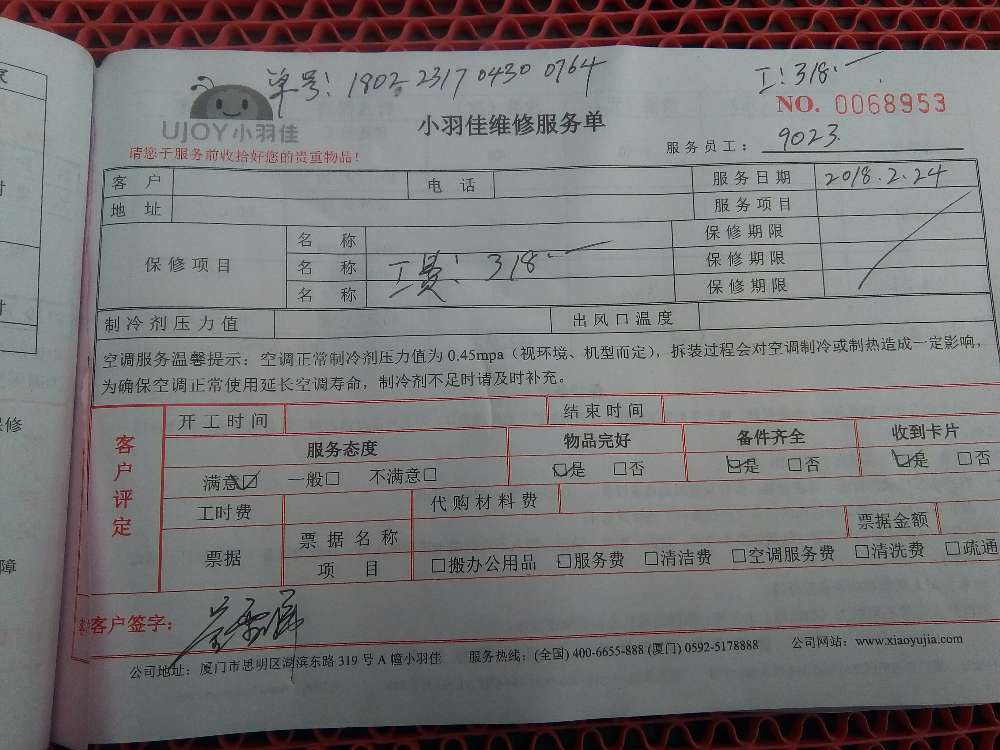 单号: 1802 2317 0430 0764
工: 318.一
UJOY小羽佳
小羽佳维修服务单
NO. 0068953
请您于服务前收拾好您的贵重物品!
服务员工: 9023
客户 电话 服务日期 2018.2.24
地址 服务项目
保修项目
名称 保修期限
名称 工费: 318.一 保修期限
名称 保修期限
制冷剂压力值 出风口温度
空调服务温馨提示: 空调正常制冷剂压力值为 0.45mpa (视环境、机型而定), 拆装过程会对空调制冷或制热造成一定影响,
为确保空调正常使用延长空调寿命, 制冷剂不足时请及时补充。
客户评定
开工时间 结束时间
服务态度 物品完好 备件齐全 收到卡片
满意☑ 一般□ 不满意□ ☑是 □否 ☑是 □否 ☑是 □否
工时费 代购材料费
票据 票据名称 票据金额
项目 □搬办公用品 □服务费 □清洁费 □空调服务费 □清洗费 □疏通
客户签字:
公司地址: 厦门市思明区湖滨东路 319 号 A 幢小羽佳 服务热线: (全国) 400-6655-888 (厦门) 0592-5178888 公司网站: www.xiaoyujia.com
时
时
修
障